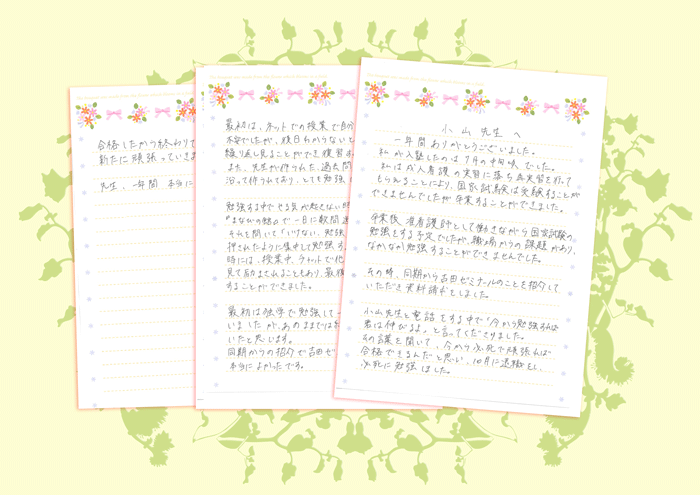 小山先生へ
一年間ありがとうございました。
私が入塾したのは7月の中旬頃でした。
私は成人看護の実習に落ち再実習を行って
もらえることにより、国家試験は受験することが
できませんでしたが卒業することができました。
卒業後、准看護師として働きながら国家試験の
勉強をする予定でしたが、職場からの課題があり、
なかなか勉強することができませんでした。
その時、同期から吉田ゼミナールのことを紹介して
いただき資料請求をしました。
小山先生と電話をする中で「今から勉強すれば
君は伸びるよ」と言ってくださりました。
その言葉を聞いて、今から必死で頑張れば
合格できるんだと思い、10月に退職をし、
必死に勉強しました。
最初は、ネットでの授業で自分
不安でしたが、後日わからない
繰り返し見ることができ復習
また、先生が作られた過去問
沿って作られており、とても勉強
勉強する中でやる気が起きない時
先生との電話の中で一日に数問
それを聞いて
押されたように集中して勉強す
時には、授業中、チャットで他
見て励まされることもあり、最後
することができました。
最初は独学で勉強して
いましたが、あのままでは
いたと思います。
同期からの紹介で吉田ゼ
本当によかったです。
合格したから終わりで
新たに頑張っていきま
先生、一年間 本当に